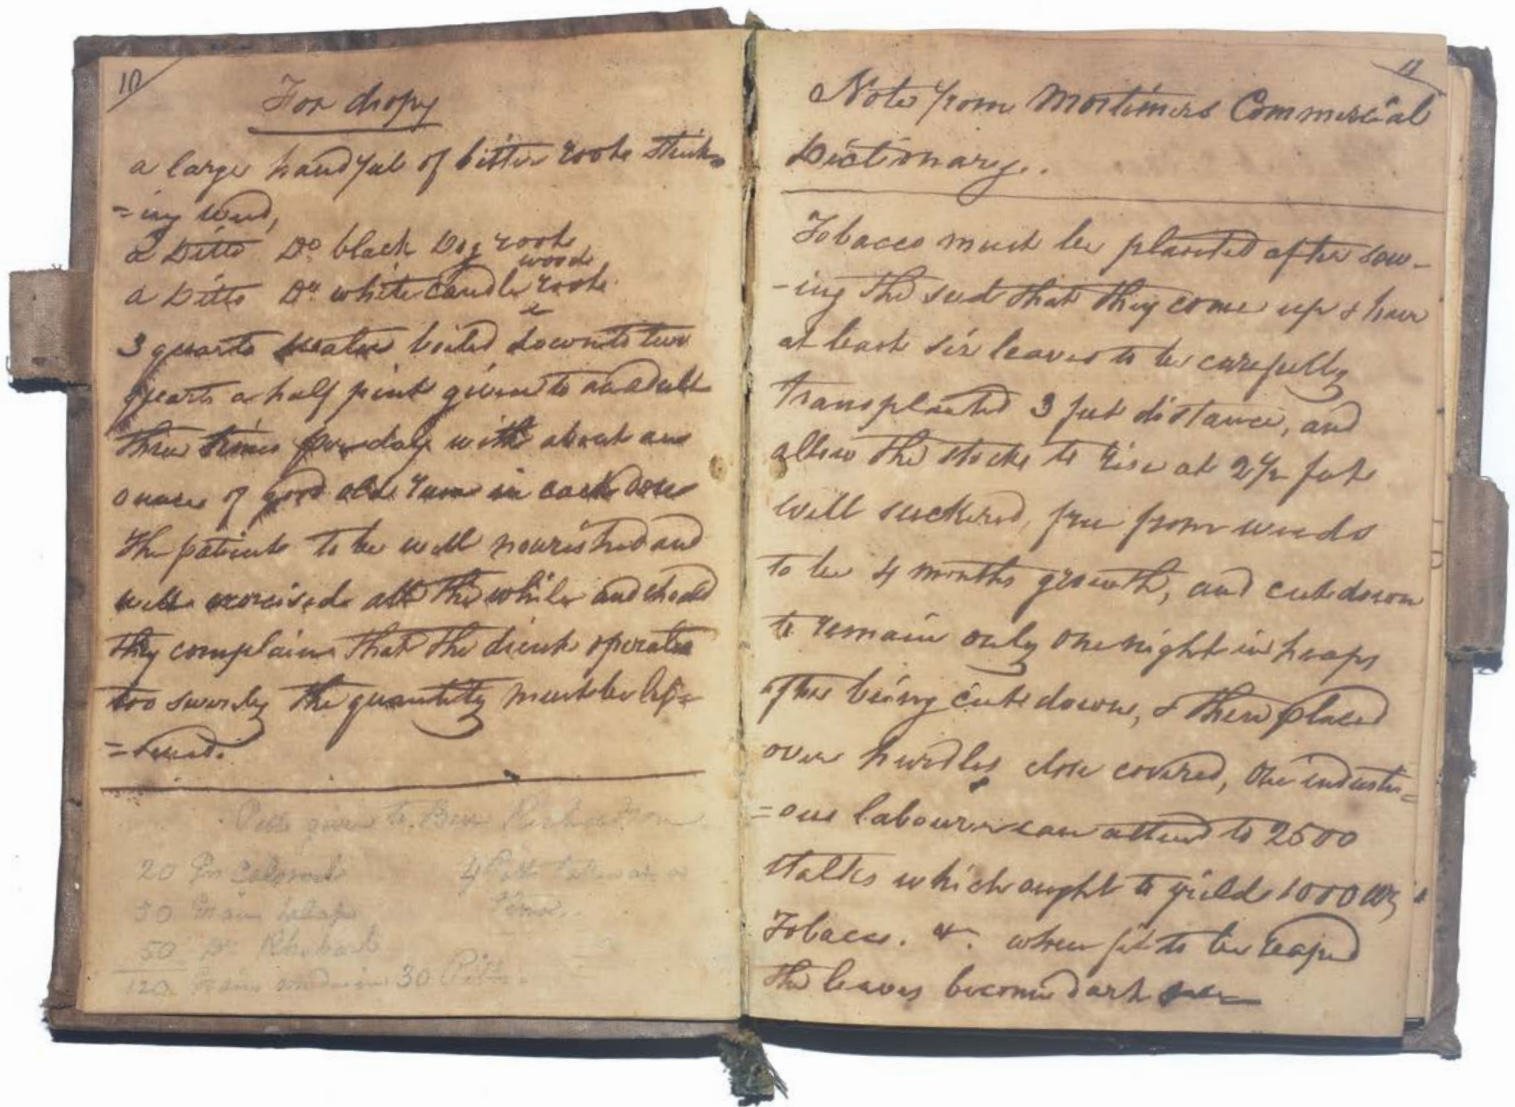 10
For dropsy
a large handful of bitter roote stink=
=ing weed,
a Ditto Do black Dog roote
wood
a Ditto Do white candle roote
3 quarts water boiled down to two
quarts a half pint given to an adult
three times per day with about one
ounce of good old rum in each dose
The patient to be well nourished and
well exercised all the while and should
they complain that the drink operates
too the quantity must be les=
=sened.
Pills given to Ben Richardson
20 Grs Calomel
50 Grain Jalap
50 Do Rhubarb
120 Grains made in 30 Pills.
4 Pills taken at a
time.
11
Note from Mortimers Commercial
Dictionary.
Tobacco must be planted after sow-
-ing the seed that they come up & have
at least six leaves to be carefully
transplanted 3 feet distance, and
allow the stocks to rise at 2½ feet
well suckered, free from weeds
to be 4 months growth, and cut down
to remain only one night in heaps
after being cut down, & then placed
over hurdles close covered, one industri=
=ous labourer can attend to 2500
stalks which ought to yield 1000 lbs
Tobacco. &c. when fit to be reaped
the leaves become dark